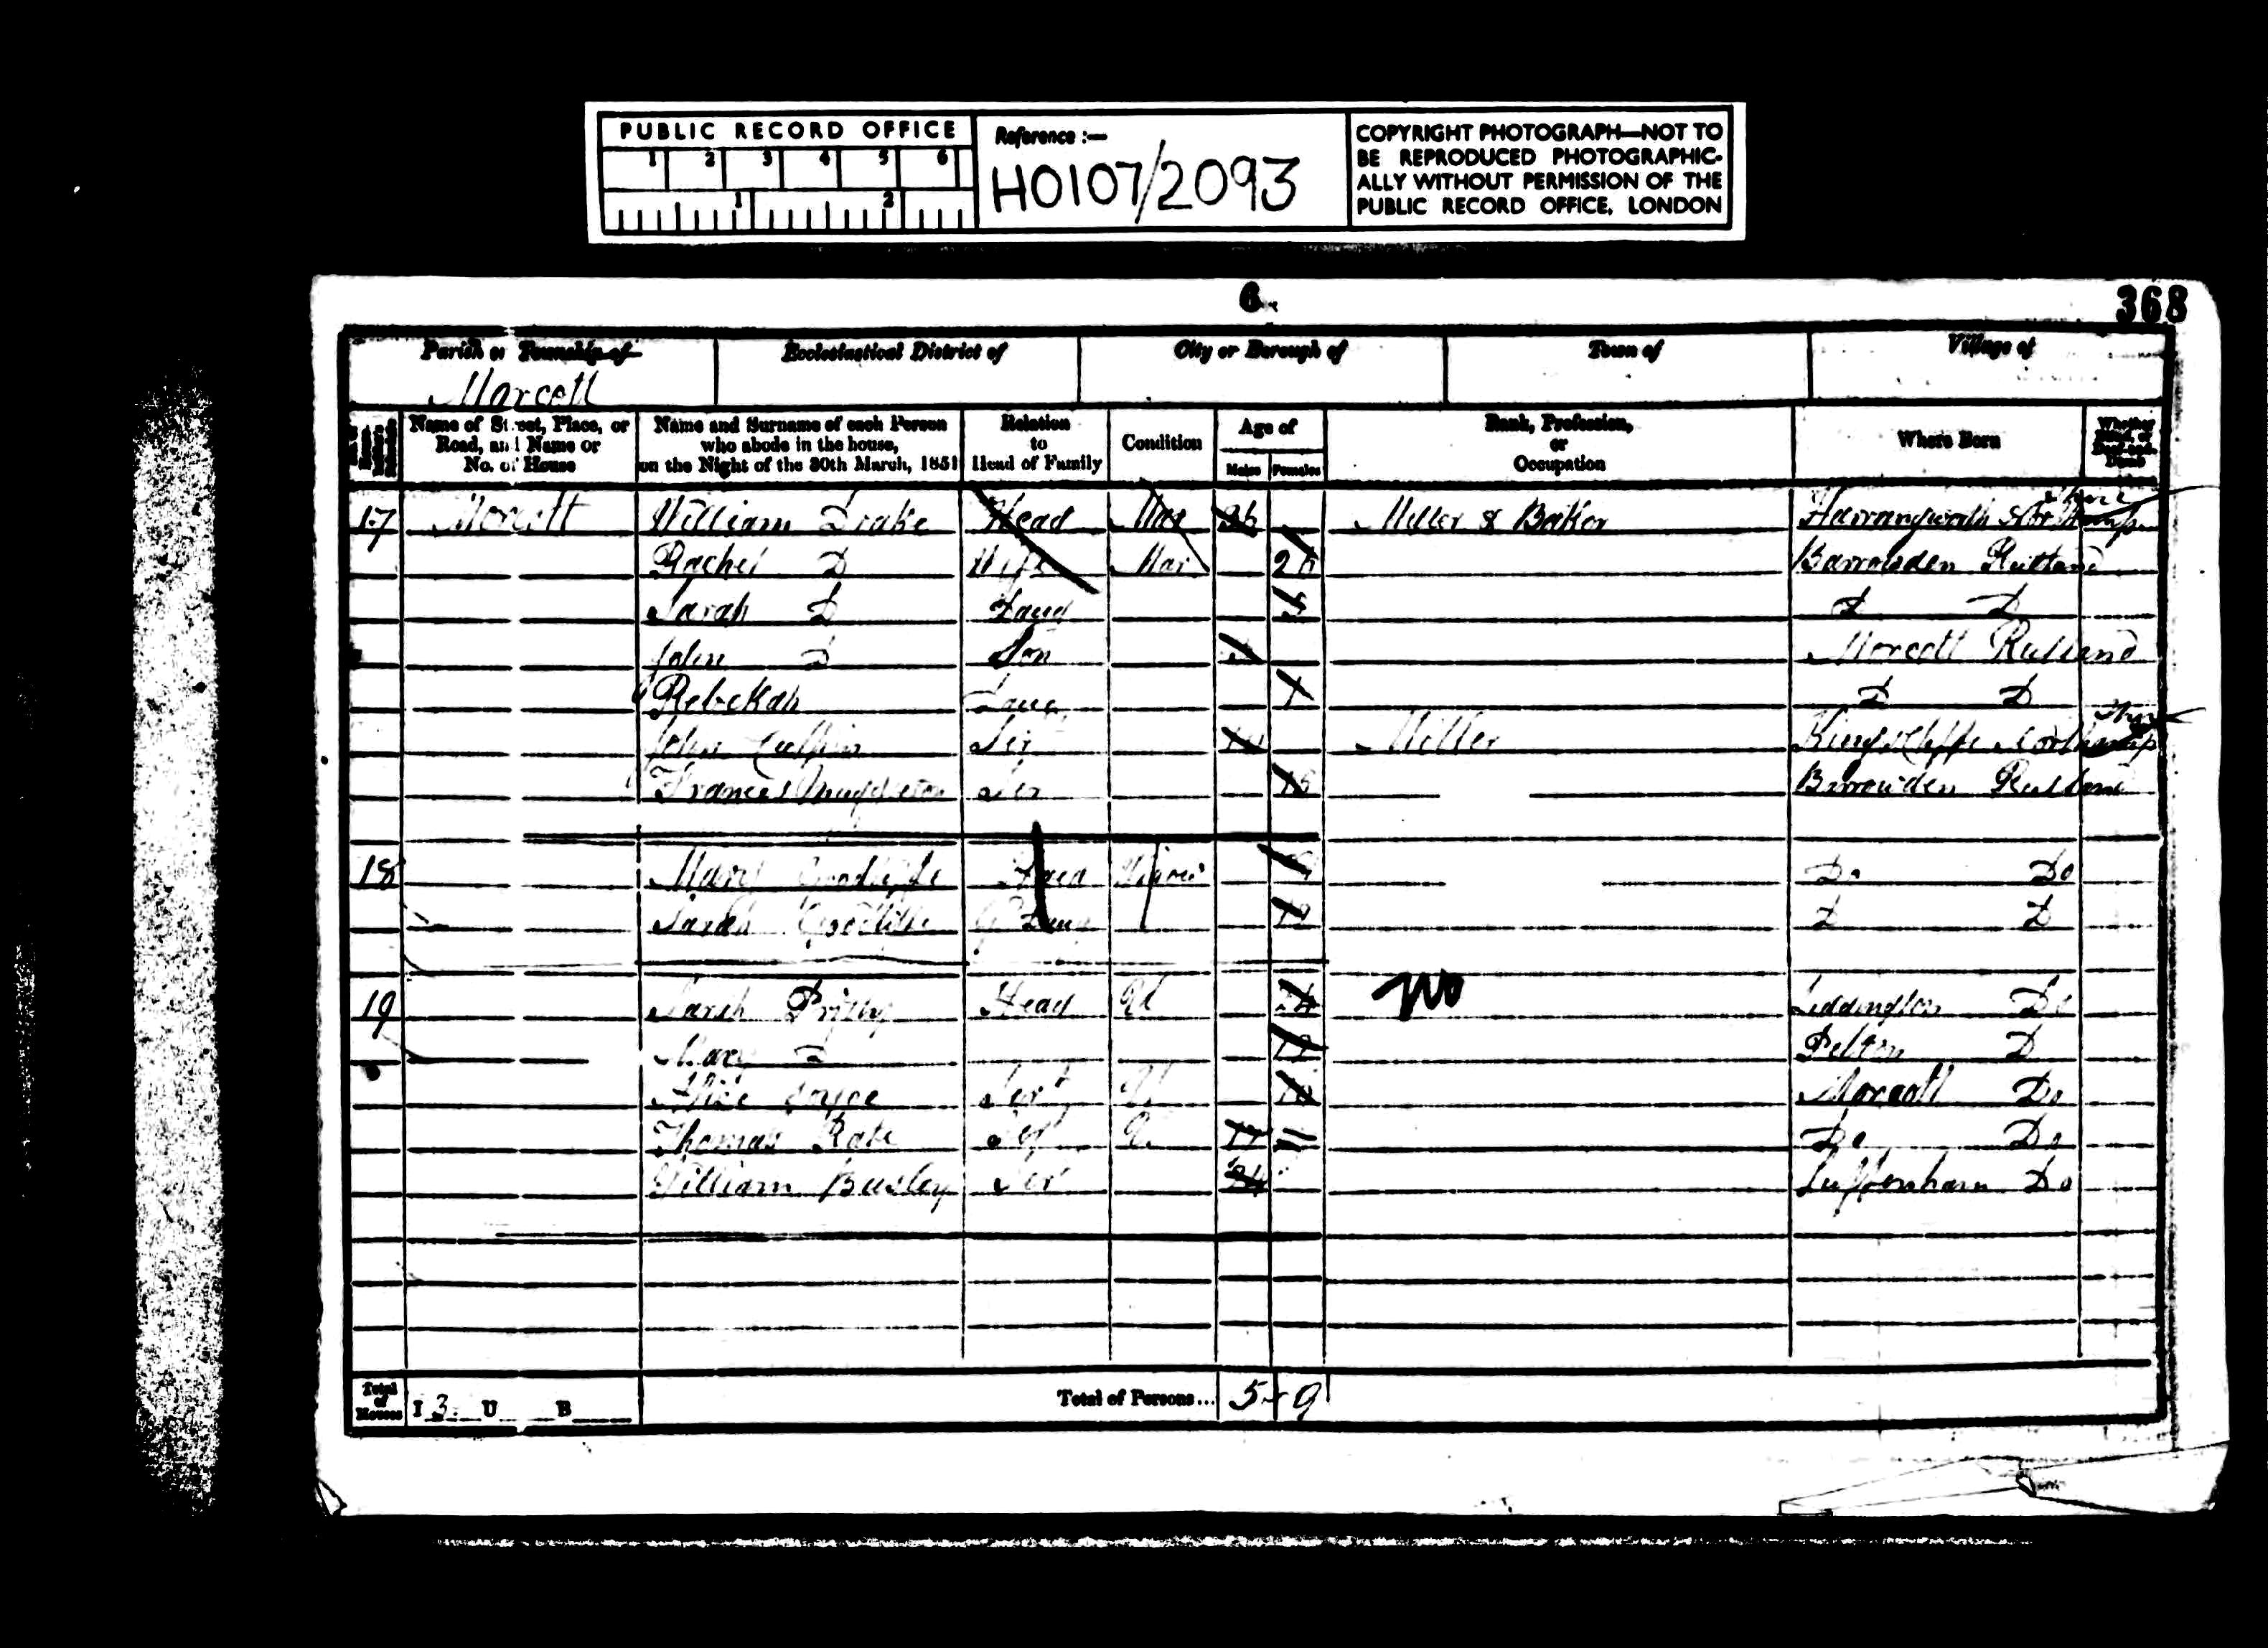 PUBLIC RECORD OFFICE
1 2 3 4 5 6
1 2
Reference :—
HO107/2093
COPYRIGHT PHOTOGRAPH—NOT TO
BE REPRODUCED PHOTOGRAPHIC-
ALLY WITHOUT PERMISSION OF THE
PUBLIC RECORD OFFICE, LONDON
6
368
Parish or Township of Ecclesiastical District of City or Borough of Town of Village of
Morcott
Name of Street, Place, or Road, and Name or No. of House
Name and Surname of each Person who abode in the house, on the Night of the 30th March, 1851
Relation to Head of Family
Condition
Age of
Males Females
Rank, Profession, or Occupation
Where Born
Whether Blind, or Deaf-and-Dumb
17 Morcott William Drake Head Mar 36 Miller & Baker Harrangworth
Rachel D Wife Mar Barrowden Rutland
Sarah D Daug 5 D D
John D Son Morcott Rutland
Rebekah Daug 1 D D
John Ser Miller Kings Cliffe
Frances Ser Barrowden Rutland
18 Mary Head Do Do
Sarah G Daug D D
19 Sarah Head U No Liddington Do
Mary D Pilton D
Alice Joyce Ser U Morcott Do
Thomas Rate Ser U 17 Do Do
William Busley Ser 24 Luffenham Do
Total of Houses I 3 U B Total of Persons... 5 9